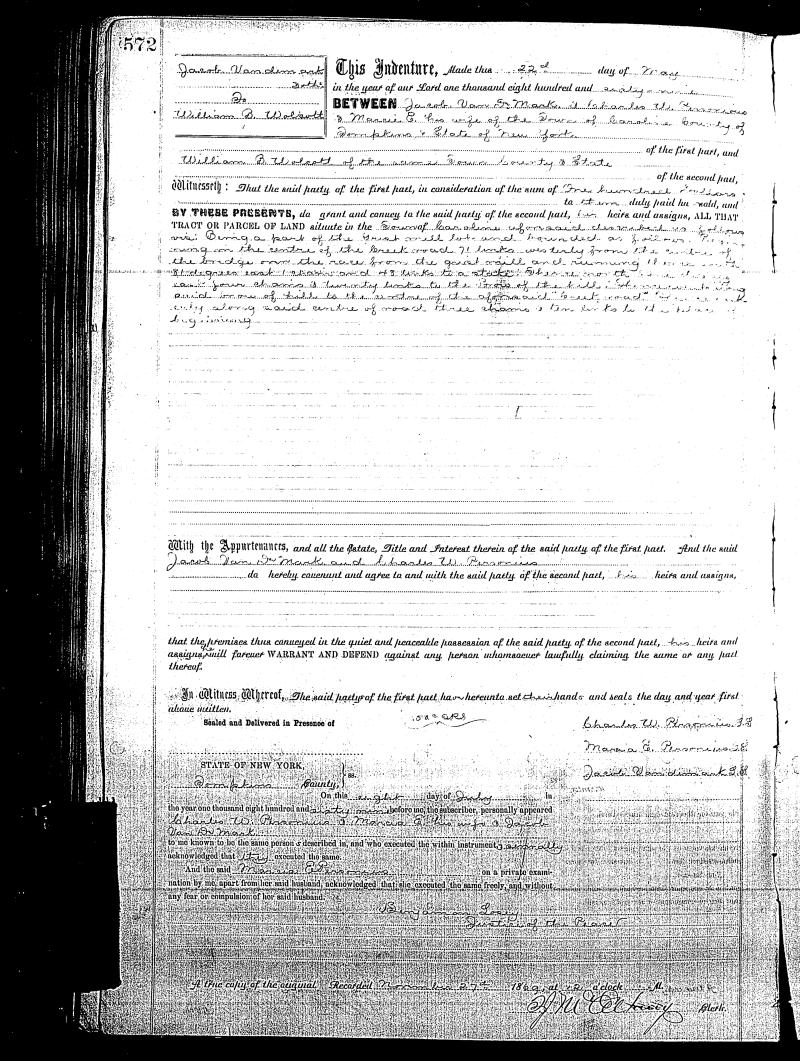 572
Jacob Vandemark
& others
To
William B. Wolcott
This Indenture, Made this 22d day of May
in the year of our Lord one thousand eight hundred and sixty nine
BETWEEN Jacob Van Dr Mark, & Charles W. Personius
& Marcia E. his wife of the Town of Caroline County of
Tompkins & State of New York
of the first part, and
William B Wolcott of the same Town County & State
of the second part,
Witnesseth: That the said party of the first part, in consideration of the sum of hundred Dollars
to them duly paid ha sold, and
BY THESE PRESENTS, do grant and convey to the said party of the second part, his heirs and assigns, ALL THAT
TRACT OR PARCEL OF LAND situate in the Town of Caroline aforesaid described as follows
viz: Being a part of the Grist mill lot and bounded as follows.
in the centre of the Creek road 71 links westerly from the centre of
the bridge over the race from the grist mill and running
degrees east 1 chain and 43 links to a stake: thence north
east four chains & twenty links to the of the hill: thence
said of hill to the centre of the aforesaid Creek road
along said centre of road three chains & ten links to the place of
beginning
With the Appurtenances, and all the Estate, Title and Interest therein of the said party of the first part. And the said
Jacob Van Dr Mark and Charles W. Personius
do hereby covenant and agree to and with the said party of the second part, his heirs and assigns,
that the premises thus conveyed in the quiet and peaceable possession of the said party of the second part, his heirs and
assigns, will forever WARRANT AND DEFEND against any person whomsoever lawfully claiming the same or any part
thereof.
In Witness Whereof, The said party of the first part have hereunto set their hands and seals the day and year first
above written.
Sealed and Delivered in Presence of
Charles W. Personius L.S
Marcia E. Personius L.S
Jacob Vandemark L.S
STATE OF NEW YORK,
Tompkins County, ss.
On this eight day of July in
the year one thousand eight hundred and sixty nine before me, the subscriber, personally appeared
Charles W. Personius & Marcia E. his wife & Jacob
Van Dr Mark
to me known to be the same persons described in, and who executed the within instrument, & severally
acknowledged that they executed the same.
And the said Marcia E Personius on a private exami-
nation by me, apart from her said husband, acknowledged that she executed the same freely, and without
any fear or compulsion of her said husband.
Benjamin Losey
Justice of the Peace
A true copy of the original Recorded November 27th 1869, at 12 o'clock M.
Clerk.